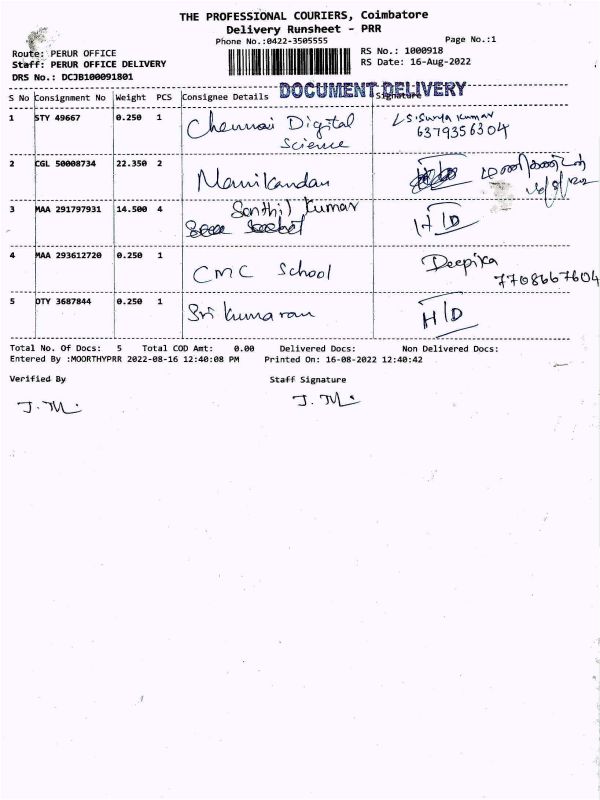 THE PROFESSIONAL COURIERS, Coimbatore
Delivery Runsheet - PRR
Phone No.:0422-3505555 Page No.:1
Route: PERUR OFFICE RS No.: 1000918
Staff: PERUR OFFICE DELIVERY RS Date: 16-Aug-2022
DRS No.: DCJB100091801
DOCUMENT DELIVERY
S No Consignment No Weight PCS Consignee Details Signature
1 STY 49667 0.250 1 Chennai Digital Science S. Surya Kumar
6379356304
2 CGL 50008734 22.350 2 Manikandan மணிகண்டன்
3 MAA 291797931 14.500 4 Senthil Kumar H/D
4 MAA 293612720 0.250 1 CMC School Deepika
7708667604
5 OTY 3687844 0.250 1 Sri Kumaran H/D
Total No. Of Docs: 5 Total COD Amt: 0.00 Delivered Docs: Non Delivered Docs:
Entered By :MOORTHYPRR 2022-08-16 12:40:08 PM Printed On: 16-08-2022 12:40:42
Verified By Staff Signature